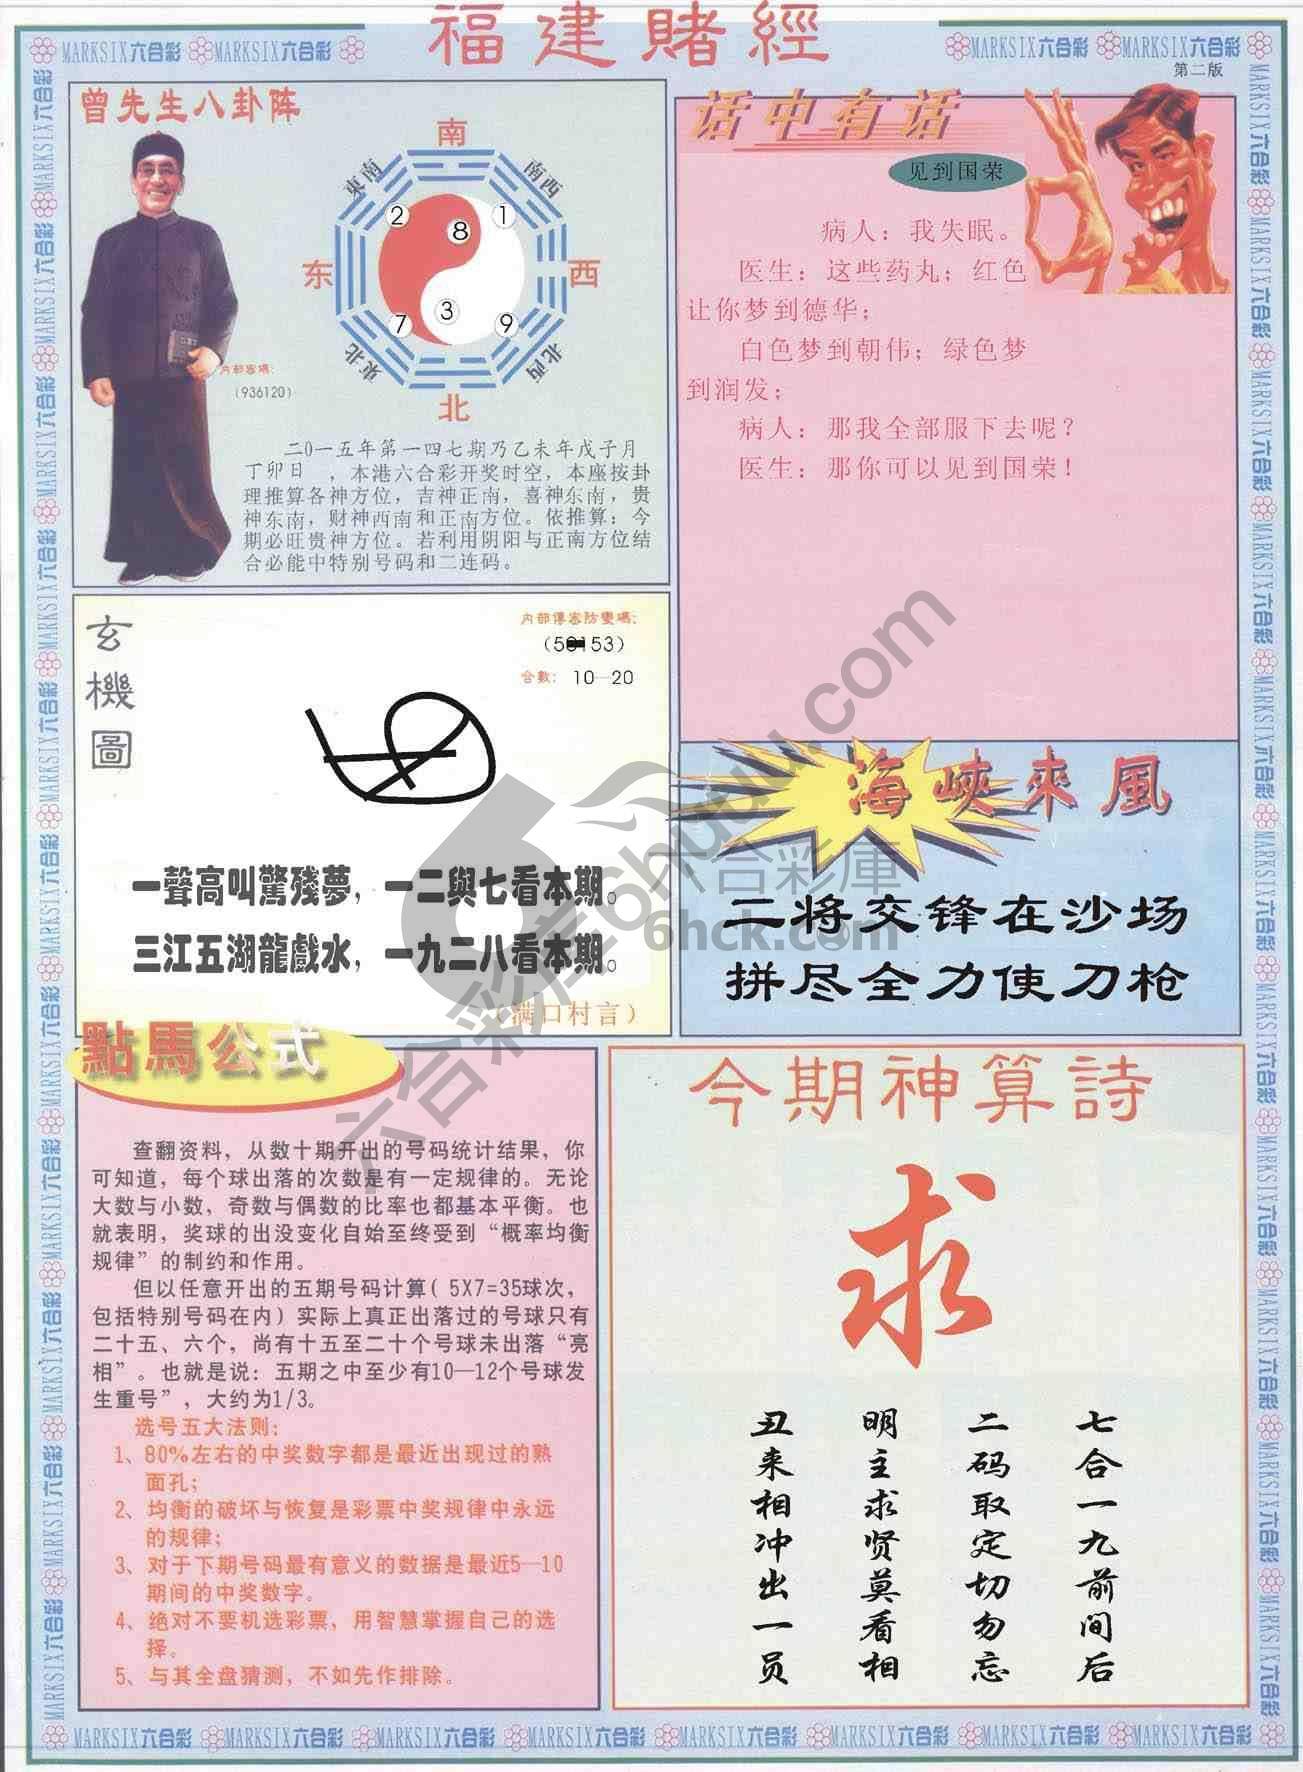 福建賭經
MARKSIX六合彩 MARKSIX六合彩
MARKSIX六合彩 MARKSIX六合彩
第二版
曾先生八卦阵
南
東南
南西
2
8
1
东
西
7
3
9
東北
北西
北
内部密碼：
（936120）
二0一五年第一四七期乃乙未年戊子月
丁卯日 ，本港六合彩开奖时空，本座按卦
理推算各神方位，吉神正南，喜神东南，贵
神东南，财神西南和正南方位。依推算：今
期必旺贵神方位。若利用阴阳与正南方位结
合必能中特别号码和二连码。
话中有话
见到国荣
病人：我失眠。
医生：这些药丸；红色
让你梦到德华；
白色梦到朝伟；绿色梦
到润发；
病人：那我全部服下去呢？
医生：那你可以见到国荣！
玄機圖
内部傳密防變碼：
合數： 10—20
一聲高叫驚殘夢，一二與七看本期。
三江五湖龍戲水，一九二八看本期。
（满口村言）
海峽來風
二将交锋在沙场
拼尽全力使刀枪
點馬公式
查翻资料，从数十期开出的号码统计结果，你
可知道，每个球出落的次数是有一定规律的。无论
大数与小数，奇数与偶数的比率也都基本平衡。也
就表明，奖球的出没变化自始至终受到“概率均衡
规律”的制约和作用。
但以任意开出的五期号码计算（ 5X7=35球次，
包括特别号码在内）实际上真正出落过的号球只有
二十五、六个，尚有十五至二十个号球未出落“亮
相”。也就是说：五期之中至少有10—12个号球发
生重号”，大约为1/3。
选号五大法则：
1、80%左右的中奖数字都是最近出现过的熟
面孔；
2、均衡的破坏与恢复是彩票中奖规律中永远
的规律；
3、对于下期号码最有意义的数据是最近5—10
期间的中奖数字。
4、绝对不要机选彩票，用智慧掌握自己的选
择。
5、与其全盘猜测，不如先作排除。
今期神算詩
求
七合一九前间后
二码取定切勿忘
明主求贤莫看相
丑来相冲出一员
六合彩库6huquu.com
六合彩庫
6hck.com
MARKSIX六合彩 MARKSIX六合彩 MARKSIX六合彩 MARKSIX六合彩 MARKSIX六合彩 MARKSIX六合彩 MARKSIX六合彩 MARKSIX六合彩